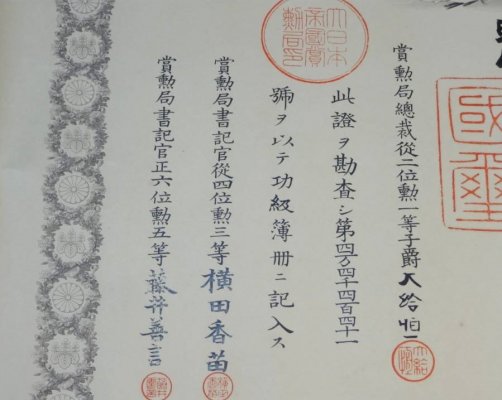 國璽
賞勳局總裁從二位勳一等子爵大給恒
大給恒
此證ヲ勘査シ第四万四千四百四十一
大日本帝國賞勳局印
號ヲ以テ功級簿冊ニ記入ス
賞勳局書記官從四位勳三等横田香苗
賞勳局書記官正六位勳五等藤井善言